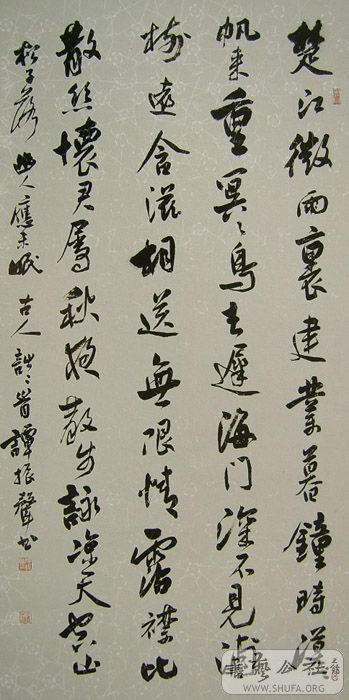 楚江微雨裏建業暮鐘時漠
帆来重冥々鳥去遲海门深不見浦
樹遠含滋相送無限情霑襟比
散丝懷君屬秋夜散步詠凉天空山
松子落幽人應未眠古人詩二首譚振
書藝公社
WWW.SHUFA.ORG